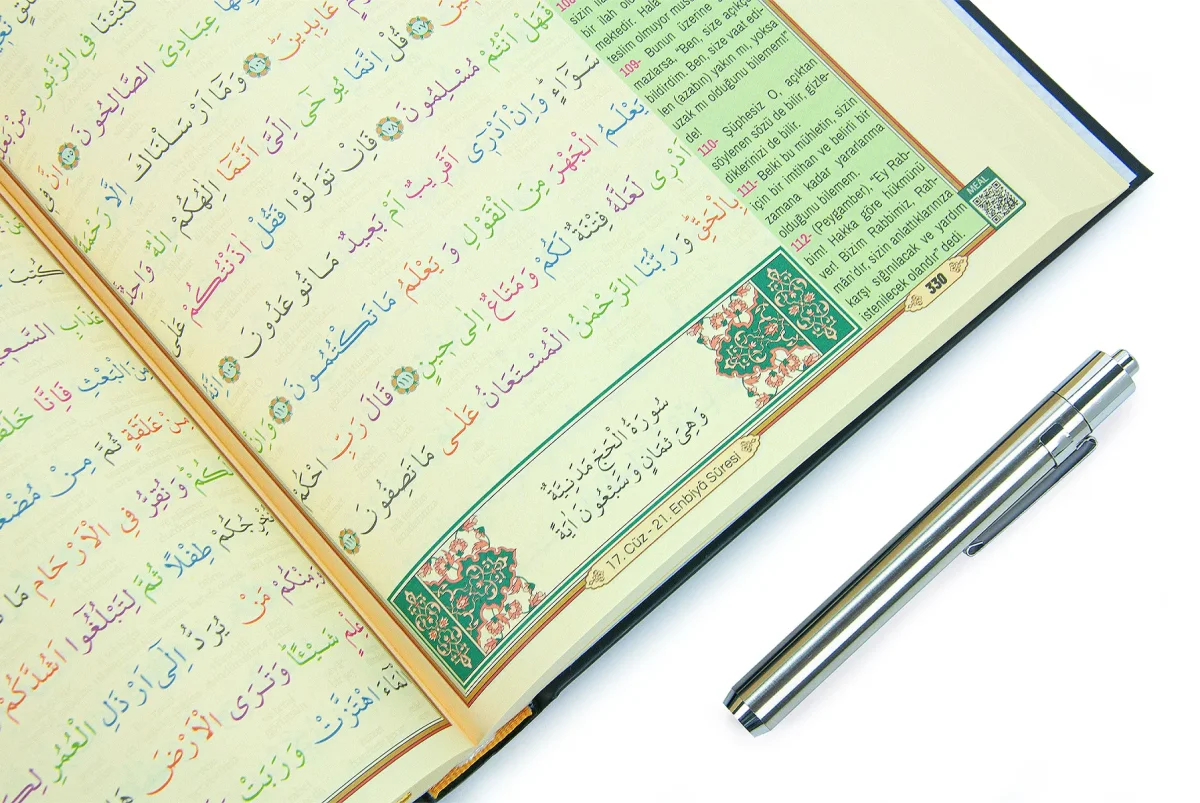 كَتَبْنَا فِى الزَّبُورِ مِنْ بَعْدِ
عِبَادِىَ الصَّالِحُونَ ١٠٥ اِنَّ فِى
عَابِد۪ينَ ١٠٦ وَمَٓا اَرْسَلْنَاكَ اِلَّا رَحْمَةً
١٠٧ قُلْ اِنَّمَا يُوحٰٓى اِلَىَّ اَنَّمَٓا اِلٰهُكُمْ اِلٰهٌ وَاحِدٌ
فَهَلْ اَنْتُمْ مُسْلِمُونَ ١٠٨ فَاِنْ تَوَلَّوْا فَقُلْ اٰذَنْتُكُمْ عَلٰى
سَوَٓاءٍ وَاِنْ اَدْر۪ٓى اَقَر۪يبٌ اَمْ بَع۪يدٌ مَا تُوعَدُونَ ١٠٩ اِنَّهُ
يَعْلَمُ الْجَهْرَ مِنَ الْقَوْلِ وَيَعْلَمُ مَا تَكْتُمُونَ ١١٠ وَاِنْ
اَدْر۪ى لَعَلَّهُ فِتْنَةٌ لَكُمْ وَمَتَاعٌ اِلٰى ح۪ينٍ ١١١ قَالَ رَبِّ احْكُمْ
بِالْحَقِّ وَرَبُّنَا الرَّحْمٰنُ الْمُسْتَعَانُ عَلٰى مَا تَصِفُونَ ١١٢
سُورَةُ الْحَجِّ مَدَنِيَّةٌ
وَهِىَ ثَمَانٍ وَسَبْعُونَ اٰيَةً
17. Cüz - 21. Enbiyâ Sûresi
bir ilan
mektedir. Hala
teslim olmuyor
109- Bunun üzerine
mazlarsa, "Ben, size açıkça
bildirdim. Ben, size vaat edi-
len (azabın) yakın mı, yoksa
uzak mı olduğunu bilemem"
de!
110- Şüphesiz O, açıktan
söylenen sözü de bilir, gizle-
diklerinizi de bilir.
111- Belki bu mühletin, sizin
için bir imtihan ve belirli bir
zamana kadar yararlanma
olduğunu bilemem.
112- (Peygamber), "Ey Rab-
bim! Hakka göre hükmünü
ver! Bizim Rabbimiz, Rah-
mân'dır, sizin anlattıklarınıza
karşı sığınılacak ve yardım
istenilecek olandır" dedi.
MEÂL
330
الْبَعْثِ فَاِنَّا
مِنْ عَلَقَةٍ ثُمَّ مِنْ
وَنُقِرُّ فِى الْاَرْحَامِ مَا
طِفْلًا ثُمَّ لِتَبْلُغُٓوا اَشُدَّكُمْ
مَنْ يُرَدُّ اِلٰٓى اَرْذَلِ الْعُمُرِ
شَيْـًٔا وَتَرَى الْاَرْضَ
اهْتَزَّتْ وَرَبَتْ